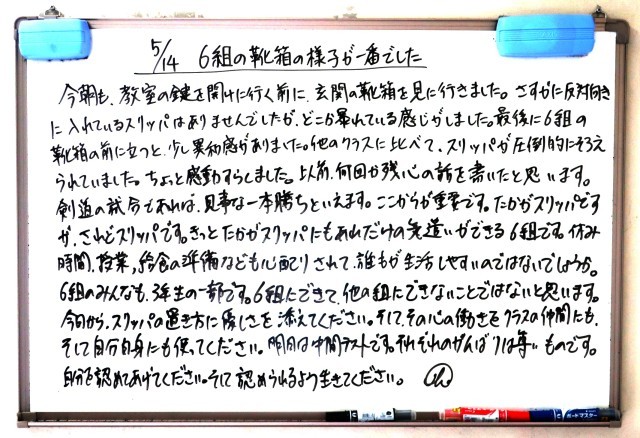 5/14 6組の靴箱の様子が一番でした
今朝も、教室の鍵を開けに行く前に、玄関の靴箱を見に行きました。さすがに反対向き
に入れているスリッパはありませんでしたが、どこか暴れている感じがしました。最後に6組の
靴箱の前に立つと、少し異和感がありました。他のクラスに比べて、スリッパが圧倒的にそろえ
られていました。ちょっと感動すらしました。以前、何回か残心の話を書いたと思います。
剣道の試合であれば、見事な一本勝ちといえます。ここからが重要です。たかがスリッパです
が、されどスリッパです。きっとたかがスリッパにもあれだけの気遣いができる6組です。休み
時間、授業、給食の準備なども心配りされて、誰もが生活しやすいのではないでしょうか。
6組のみんなも、3年生の一部です。6組にできて、他の組にできないことではないと思います。
今日から、スリッパの置き方に優しさを添えてください。そして、その心の働きをクラスの仲間にも、
そして自分自身にも使ってください。明日は中間テストです。それぞれのがんばりは尊いものです。
自分を認めてあげてください。そして認められるよう生きてください。